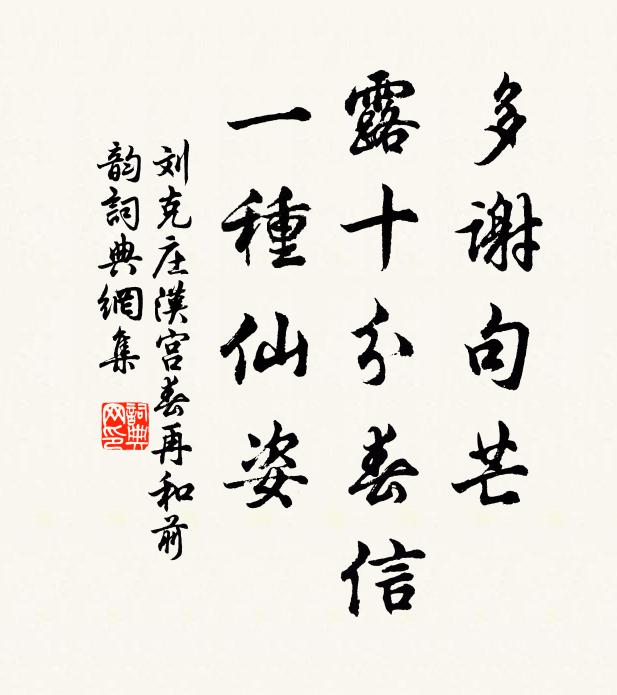 多謝句芒
露十分春信
一種仙姿
刘克庄漢宫春再和前
韵詞典網集
詞典网印